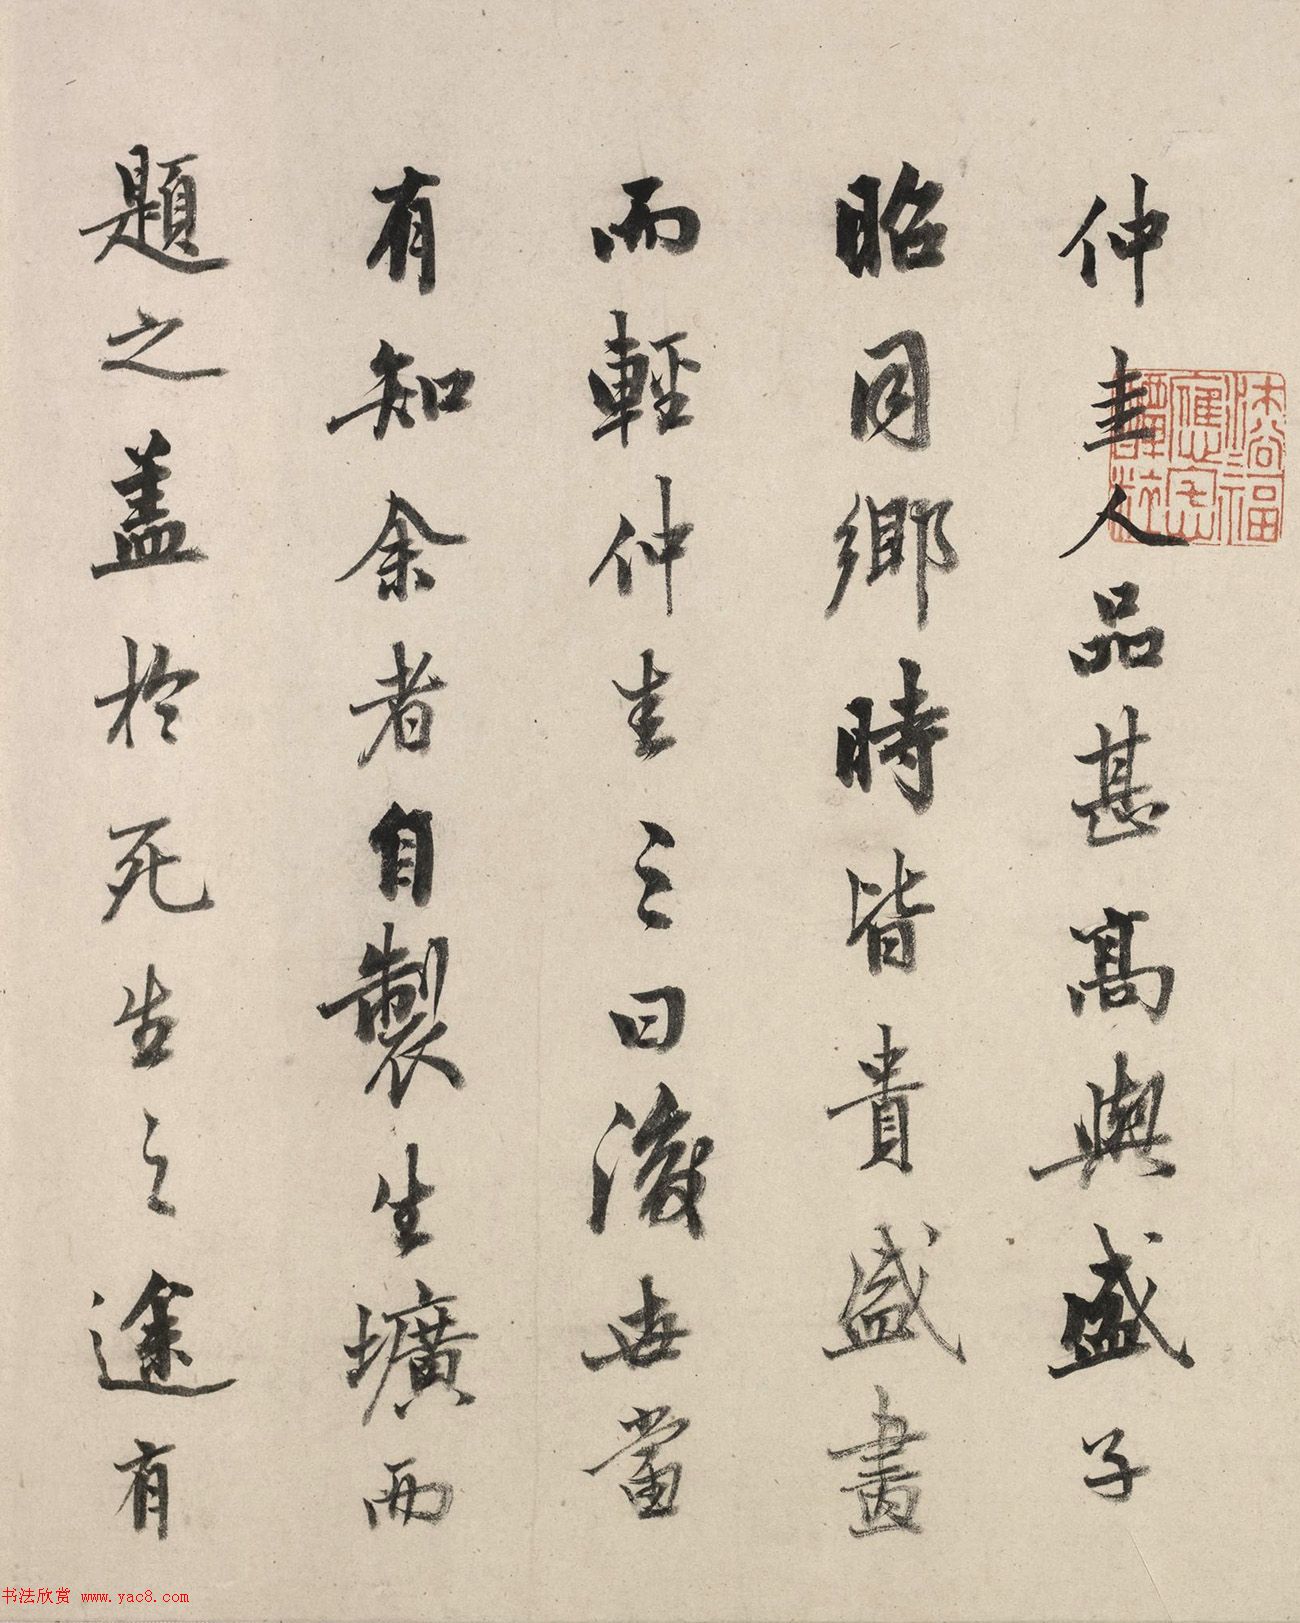 仲圭人品甚高與盛子
昭同鄉時皆貴盛畫
而輕仲圭之曰後世當
有知余者自製生壙而
題之蓋於死生之途有
书法欣赏 www.yac8.com